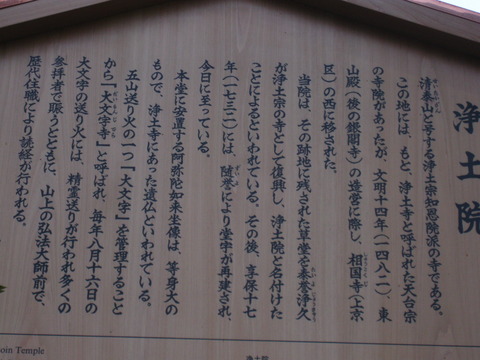 浄土院
清泰山と号する浄土宗知恩院派の寺である。
この地には、もと、浄土寺と呼ばれた天台宗
の寺院があったが、文明十四年(一四八二)、東
山殿(後の銀閣寺)の造営に際し、相国寺(上京
区)の西に移された。
当院は、その跡地に残された草堂を泰誉浄久
が浄土宗の寺として復興し、浄土院と名付けた
ことによるといわれている。その後、享保十七
年(一七三二)には、随誉により堂宇が再建され、
今日に至っている。
本堂に安置する阿弥陀如来坐像は、等身大の
もので、浄土寺にあった遺仏といわれている。
五山送り火の一つ「大文字」を管理すること
から「大文字寺」と呼ばれ、毎年八月十六日の
大文字の送り火には、精霊送りが行われ多くの
参拝者で賑うとともに、山上の弘法大師前で、
歴代住職により読経が行われる。
oin Temple
浄土院